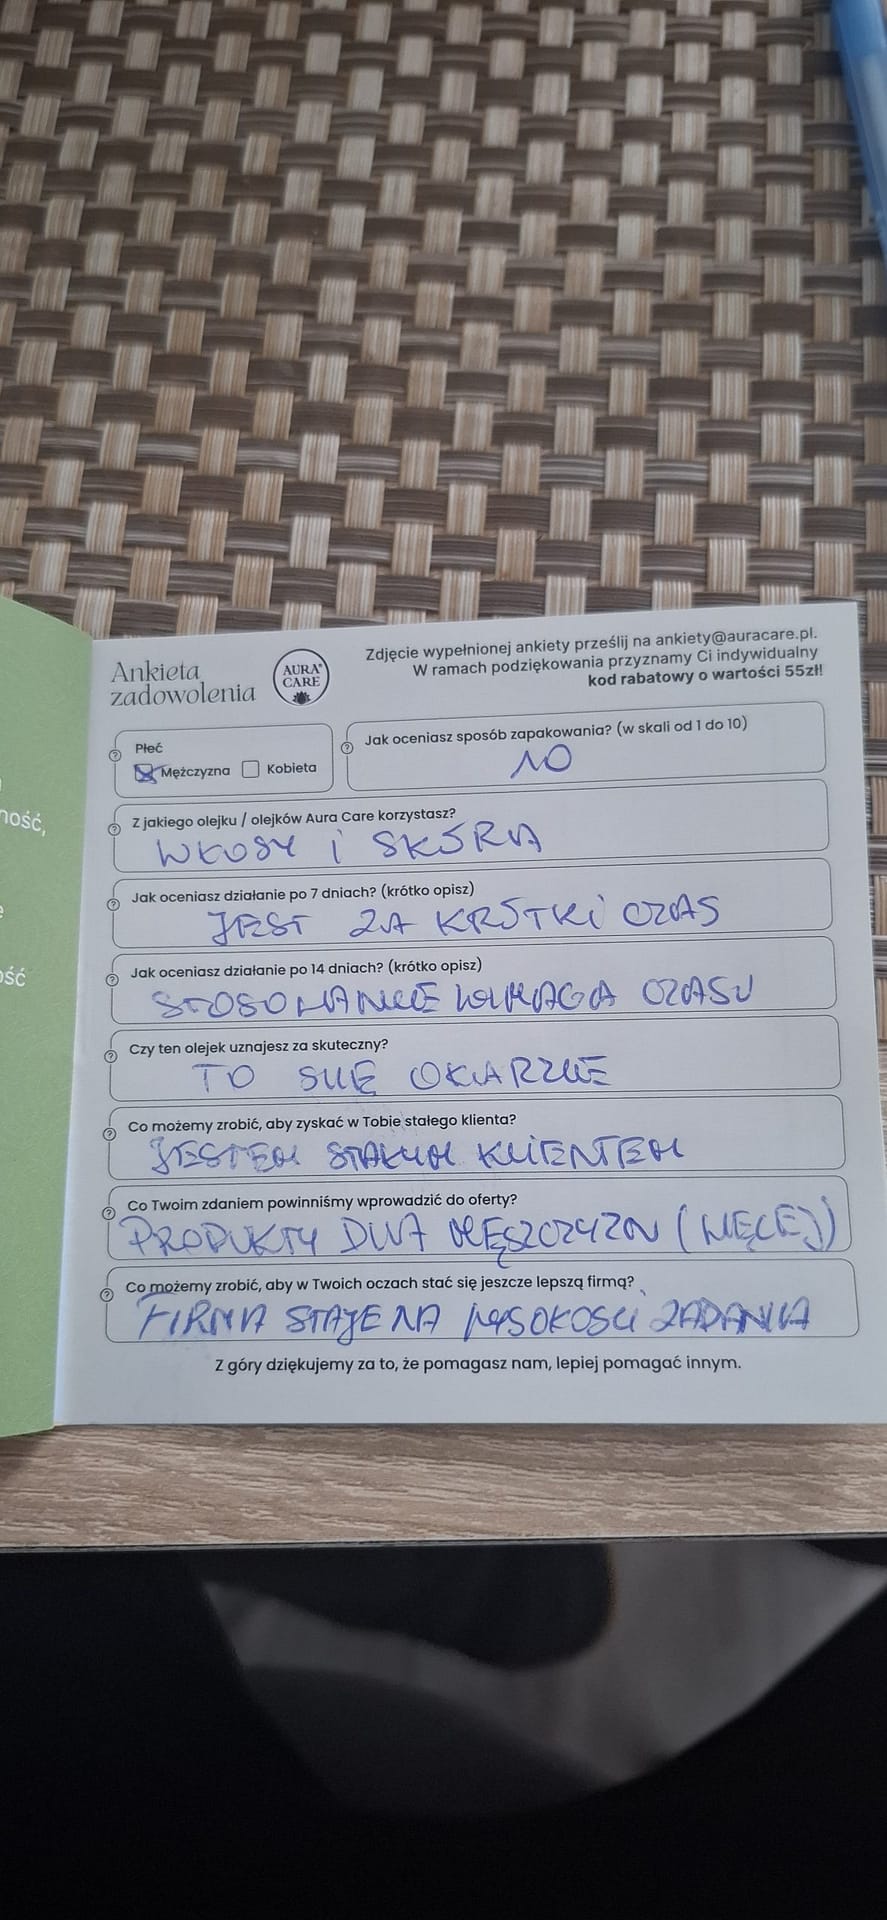 ność,
ość
Ankieta
zadowolenia
AURA
CARE
Zdjęcie wypełnionej ankiety prześlij na ankiety@auracare.pl.
W ramach podziękowania przyznamy Ci indywidualny
kod rabatowy o wartości 55zł!
Płeć
Mężczyzna Kobieta
Jak oceniasz sposób zapakowania? (w skali od 1 do 10)
10
Z jakiego olejku / olejków Aura Care korzystasz?
WŁOSY I SKÓRA
Jak oceniasz działanie po 7 dniach? (krótko opisz)
JEST ZA KRÓTKI CZAS
Jak oceniasz działanie po 14 dniach? (krótko opisz)
STOSOWANIE WYMAGA CZASU
Czy ten olejek uznajesz za skuteczny?
TO SIĘ OKARZIE
Co możemy zrobić, aby zyskać w Tobie stałego klienta?
JESTEM STAŁYM KLIENTEM
Co Twoim zdaniem powinniśmy wprowadzić do oferty?
PRODUKTY DLA MĘSZCZYZN (WĘCEJ)
Co możemy zrobić, aby w Twoich oczach stać się jeszcze lepszą firmą?
FIRMA STAJE NA WYSOKOSCI ZADANIA
Z góry dziękujemy za to, że pomagasz nam, lepiej pomagać innym.